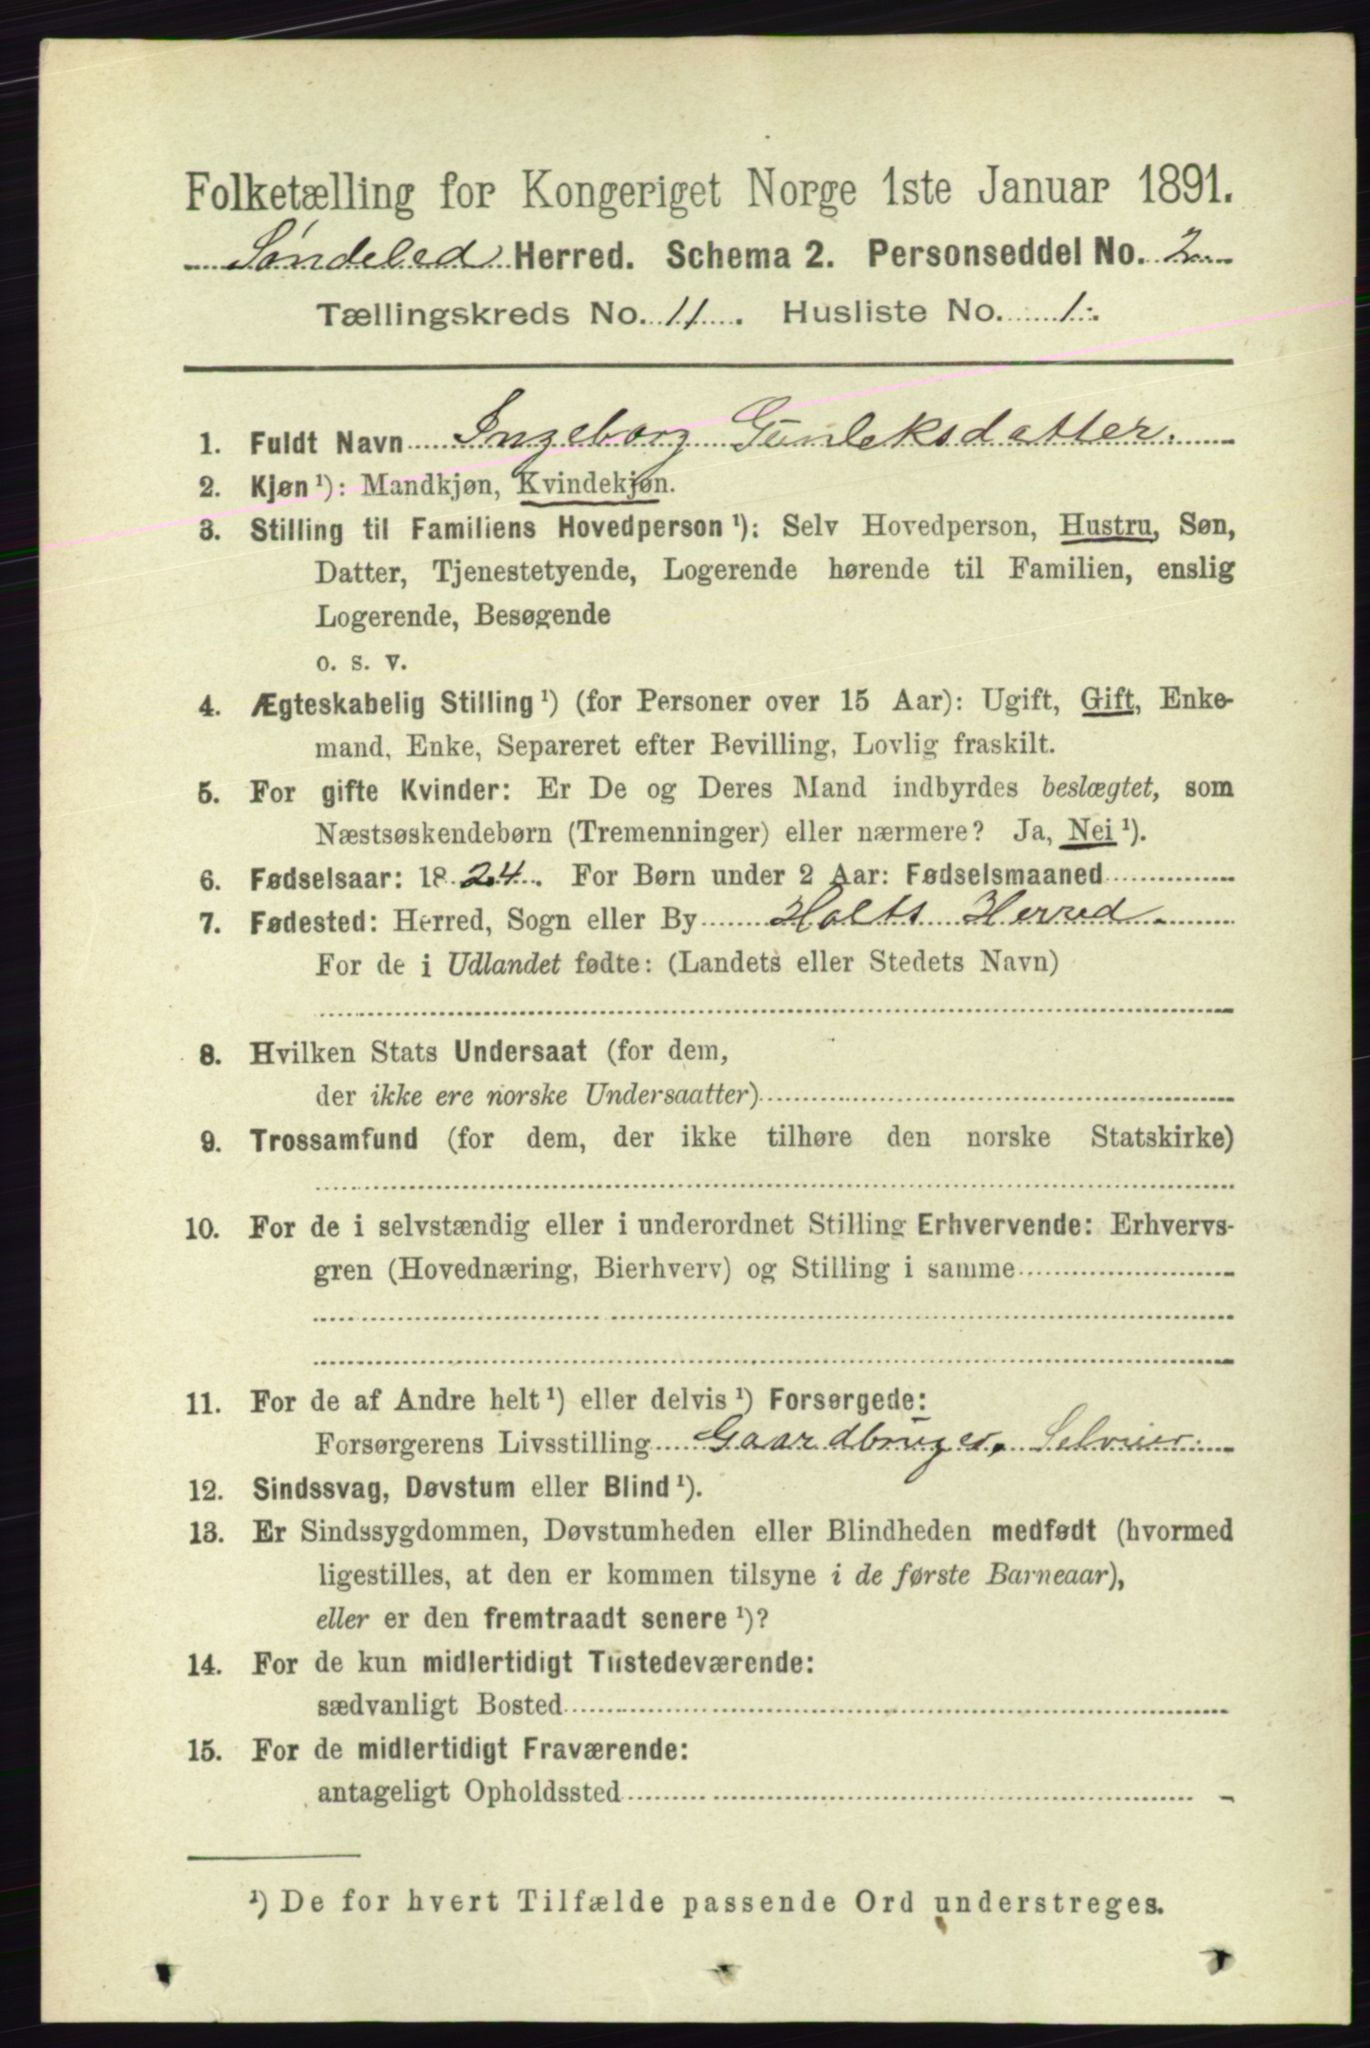 Folketælling for Kongeriget Norge 1ste Januar 1891.
Søndeled Herred. Schema 2. Personseddel No. 2
Tællingskreds No. 11. Husliste No. 1.
1. Fuldt Navn Ingeborg Gunleksdatter.
2. Kjøn¹): Mandkjøn, Kvindekjøn.
3. Stilling til Familiens Hovedperson¹): Selv Hovedperson, Hustru, Søn,
Datter, Tjenestetyende, Logerende hørende til Familien, enslig
Logerende, Besøgende
o. s. v.
4. Ægteskabelig Stilling¹) (for Personer over 15 Aar): Ugift, Gift, Enke-
mand, Enke, Separeret efter Bevilling, Lovlig fraskilt.
5. For gifte Kvinder: Er De og Deres Mand indbyrdes beslægtet, som
Næstsøskendebørn (Tremenninger) eller nærmere? Ja, Nei¹).
6. Fødselsaar: 1824. For Børn under 2 Aar: Fødselsmaaned
7. Fødested: Herred, Sogn eller By Holts Herred.
For de i Udlandet fødte: (Landets eller Stedets Navn)
8. Hvilken Stats Undersaat (for dem,
der ikke ere norske Undersaatter)
9. Trossamfund (for dem, der ikke tilhøre den norske Statskirke)
10. For de i selvstændig eller i underordnet Stilling Erhvervende: Erhvervs-
gren (Hovednæring, Bierhverv) og Stilling i samme
11. For de af Andre helt¹) eller delvis¹) Forsørgede:
Forsørgerens Livsstilling Gaardbruger, Selveier
12. Sindssvag, Døvstum eller Blind¹).
13. Er Sindssygdommen, Døvstumheden eller Blindheden medfødt (hvormed
ligestilles, at den er kommen tilsyne i de første Barneaar),
eller er den fremtraadt senere¹)?
14. For de kun midlertidigt Tilstedeværende:
sædvanligt Bosted
15. For de midlertidigt Fraværende:
antageligt Opholdssted
¹) De for hvert Tilfælde passende Ord understreges.